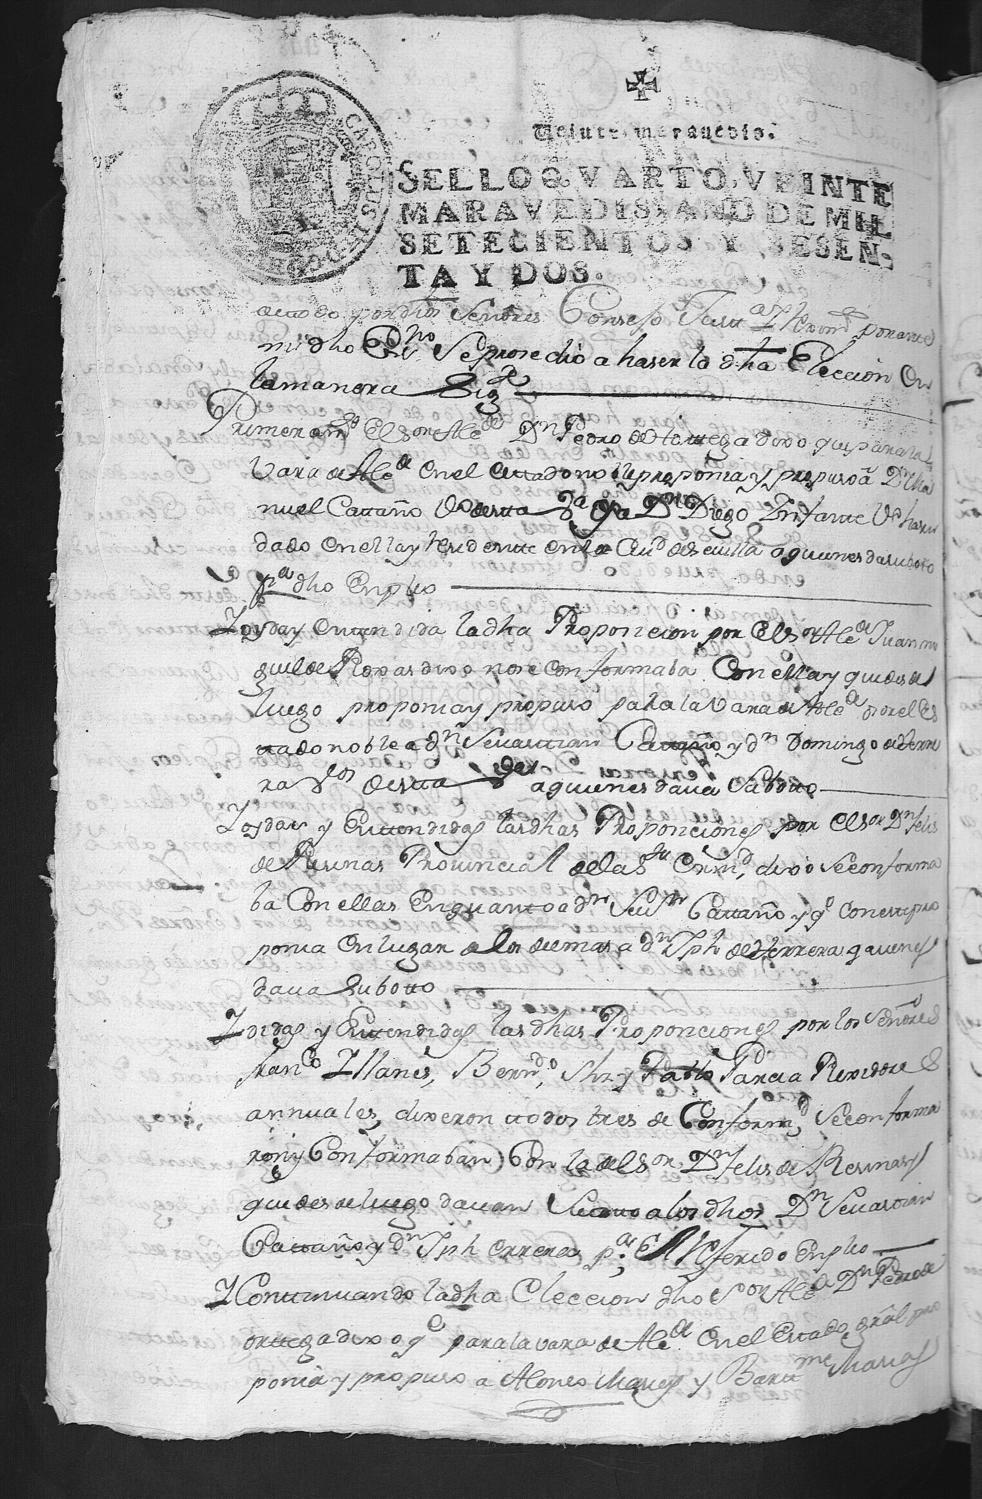 Veinte maravedis.
SELLO QVARTO, VEINTE
MARAVEDIS, AÑO DE MIL
SETECIENTOS Y SESEN-
TA Y DOS.
CAROLUS III D G
Señores Consejo Justª Y Reximdº por ante
mi dho Esno Se prosedió a haser la dha Elección En
la manera Sigte
Primeramte El Sor Alcde Dn Pedro de Hortega dixo que para la
Vara de Alcde en el estado noble proponia y propuso a Dn Ma
nuel Cattaño Vº de esta Va y a Dn Diego Infante Vº hasen
dado en ella y Residente en la Ciud de Sevilla a quienes dava su boto
pª dho Empleo
Y oyda y entendida la dha Proposicion por El Sor Alcde Juan mi
guel de Roxas dixo no se conformaba Con ella y que desde
luego proponia y propuso para la vara de Alcde por el Es
tado noble a dn Sevastian Cattaño y dn Domingo de Herre
ra Vos de esta Va a quienes dava Su boto
Y oydas y Entendidas las dhas Proposiciones por el Sor Dn Felis
de Resinas Provincial de la Sta Ermd, dixo se conforma
ba Con ellas En quanto a dn Sevn Cattaño y qe Con este pro
ponia en lugar de los demas a dn Jph de Herrera a quienes
dava Su boto
Y oidas y Entendidas las dhas Proposiciones por los Señores
Franco Yllanes, Berndo, y Pablo Garcia Rexidores
annuales, dixeron todos tres de Conformd, Se conforma
ron (y Conformaban) Con la del Sor Dn Felis de Resinas y
que desde luego davan Su voto a los dhos Dn Sevastian
Cattaño y dn Jph Errera pª El Referido Empleo
Y Continuando la dha Eleccion dho Sor Alcde Dn Pedro de
ortega dixo qe para la vara de Alcde en el Estado gral pro
ponia y propuso a Alonso Macias y Bartme Macias